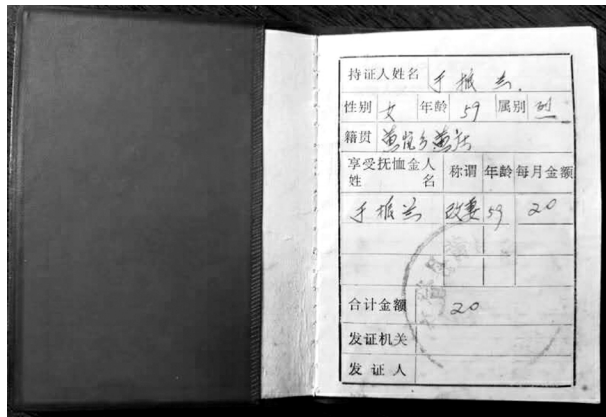 持证人姓名 于振兰
性别 女 年龄 59 属别 烈
籍贯
享受抚恤金人姓名 称谓 年龄 每月金额
于振兰 59 20
合计金额 20
发证机关
发证人